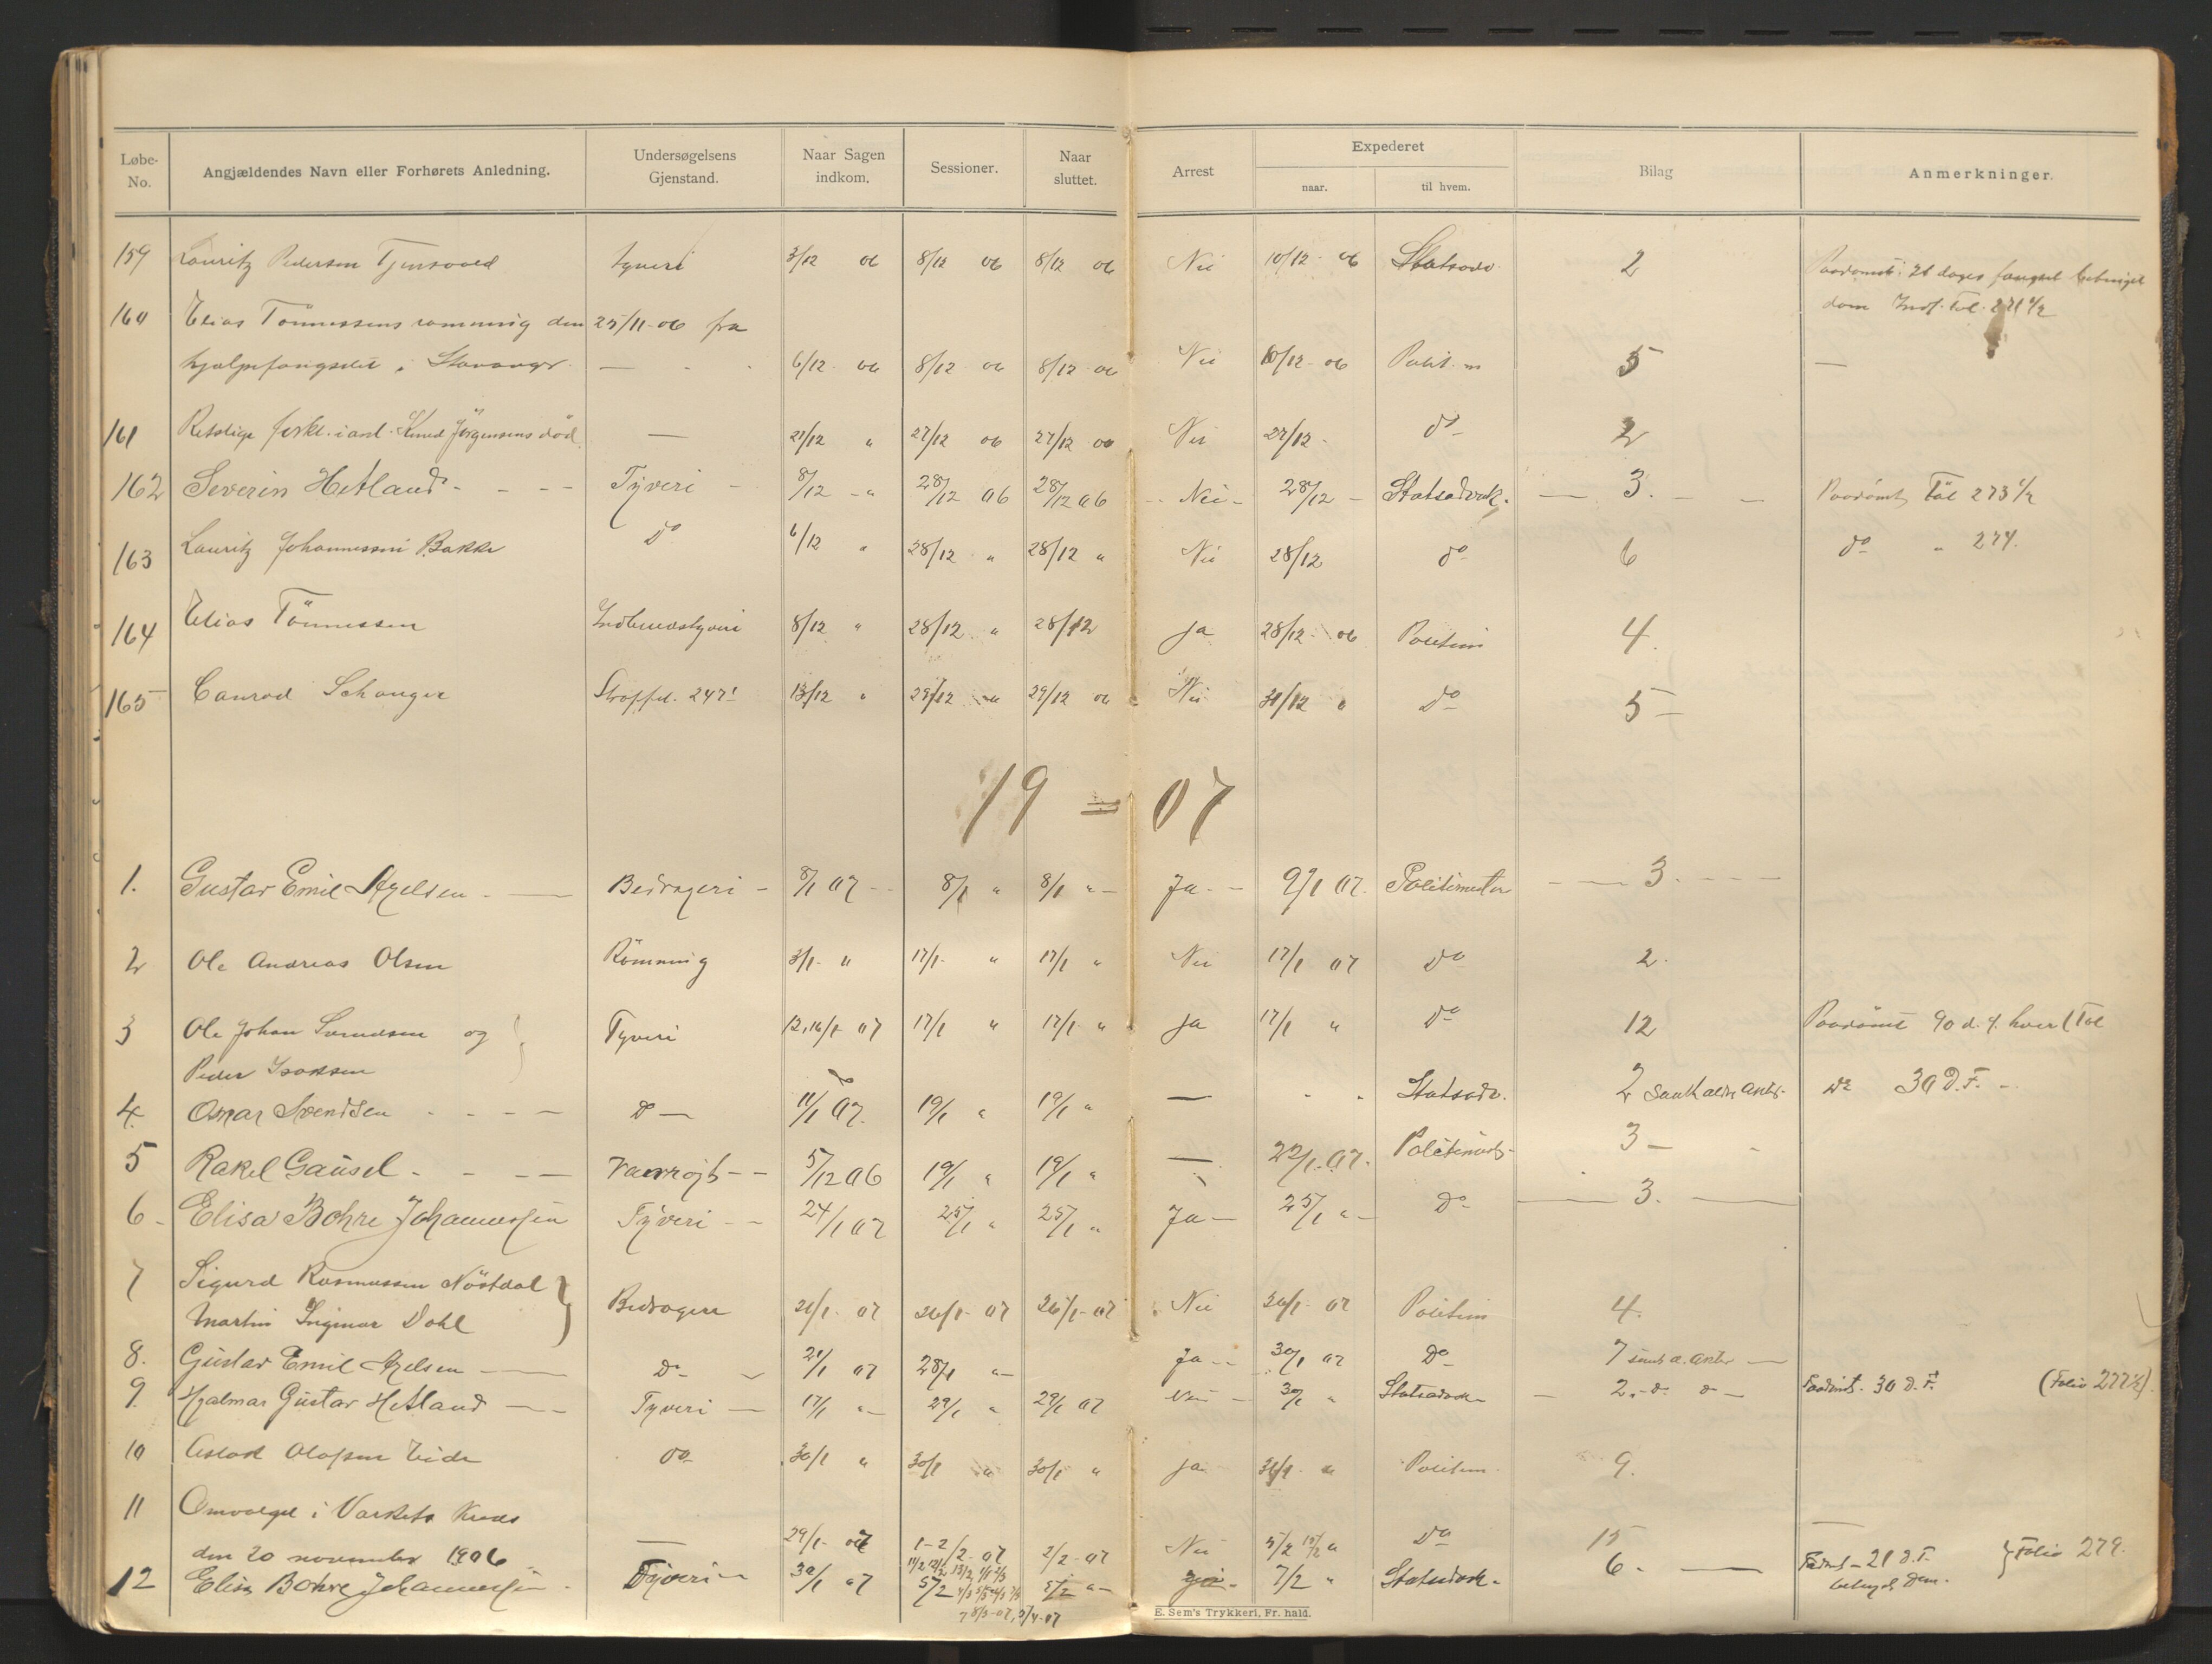 Løbe-No. Angjældendes Navn eller Forhørets Anledning. Undersøgelsens Gjenstand. Naar Sagen indkom. Sessioner. Naar sluttet. Arrest Expederet naar. til hvem. Bilag Anmerkninger.
159 Lauritz Pedersen tyveri 3/12 06 8/12 06 8/12 06 Nei 10/12 06 Statsadv. 2 Paadømt: 21 dages fængsel betinget
160 Elias Tönnessens rømning den 25/11-06 fra dom Fol. 271 1/2
hjælpefængslet i Stavanger. — 6/12 06 8/12 06 8/12 06 Nei 10/12-06 Polit.m 5 —
161 Retslige forkl. i anl. Knud Jörgensens död — 21/12 " 27/12 06 27/12 06 Nei 27/12 do 2
162 Severin Hetland - - - Tyveri - 8/12 - " 28/12 06 28/12 06 - Nei - 28/12 - Statsadvok. — 3. — — Paadömt Fol 273 1/2
163 Lauritz Johannessen Bakke do 6/12 " 28/12 " 28/12 " Nei 28/12 do 6 do " 274.
164 Elias Tönnessen Indbrudstyveri 8/12 " 28/12 " 28/12 ja 28/12 06 Politim 4.
165 Conrad Schanger Straffel. 247 13/12 " 29/12 " 29/12 06 Nei 31/12 " do 5 —
19 = 07
1. Gustav Emil Axelsen - — Bedrageri - 8/1 07 - - 8/1 " 8/1 " — Ja - - 9/1 07. Politimester - — 3. - - -
2 Ole Andreas Olsen Römning 3/1 " 17/1 " 17/1 " Nei 17/1 07 do 2.
3 Ole Johan Svendsen og } Tyveri 12,16/1 07 17/1 " 17/1 " ja 17/1 " do 12 Paadömt 90 d. f. hver (Fol
Peder Isaksen
4. Omar Svendsen - - - — do — 11/1 07. 19/1 " 19/1 " — " " Statsadv. 2 do 30 D. F. -
5 Rakel Gausel - - - — 5/12 06 19/1 " 19/1 " — 22/1 07. Politimest. 3 —
6 - Elisa Bohre Johannessen Tyveri - - 24/1 07 25/1 " 25/1 " Ja — 25/1 " — do — 3. —
7 Sigurd Rasmussen Nöstdal }
Martin Ingmar Dahl Bedrageri 21/1 07 26/1 07 26/1-07 Nei 26/1 07 Politim 4.
8. Gustav Emil Axelsen — do 21/1 07 28/1 " — Ja - - 30/1 07 do 7 samt a. akter —
9. Hjalmar Gustav Hetland — - Tyveri — 17/1 " — 29/1 " 29/1 07 Nei — 30/1 " Statsadvok — 2. - do. do — Paadömt. 30 D. F. (Folio 277 1/2)
10 Aslak Olafsen Eide do 30/1 " 30/1 " 30/1 " ja 31/1 " Politim 9.
11 Omvalget i Varhets Kreds
den 20 november 1906 — 29/1 07 1-2/2-07 2/2-07 Nei 5/2 do 15 —
12 Elisa Bohre Johannessen - Tyveri — 30/1 07 5/2 5/2 " — Ja. 7/2 " Statsadvok - 6. — 21 d. F. } Folio 279.
betinget Dom.
E. Sem's Trykkeri, Fr. hald.